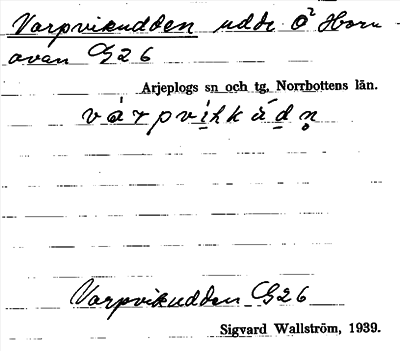 Varpvikudden udde Ö² Horn
avan G26
Arjeplogs sn och tg, Norrbottens län.
Varpvikudden G26
Sigvard Wallström, 1939.